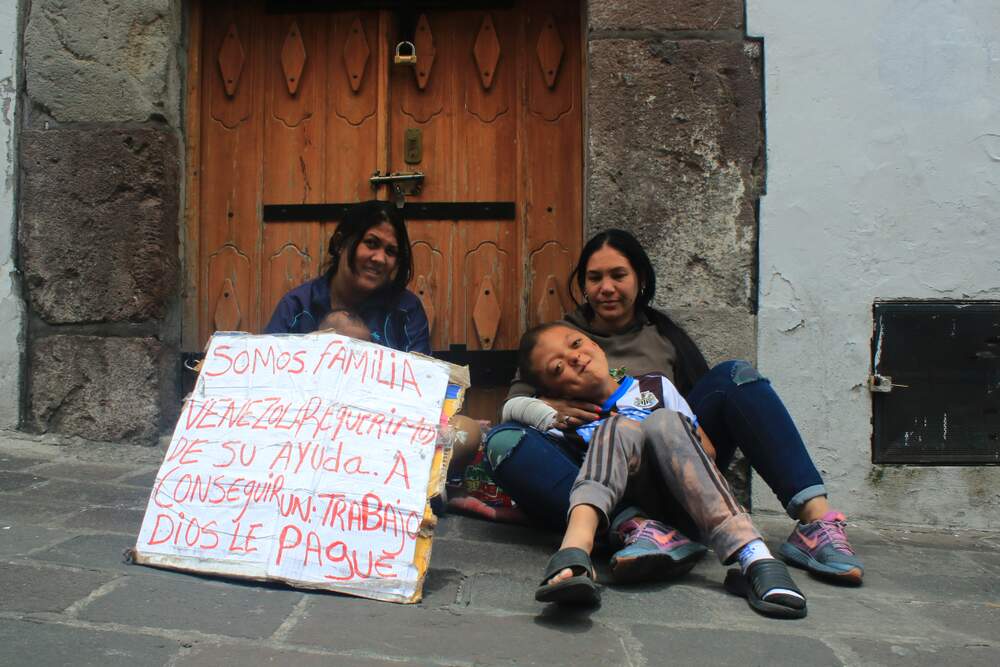 SOMOS FAMILIA
VENEZOLA, REQUERIMOS
DE SU AYUDA. A
CONSEGUIR UN. TRABAJO
DIOS LE PAGUE